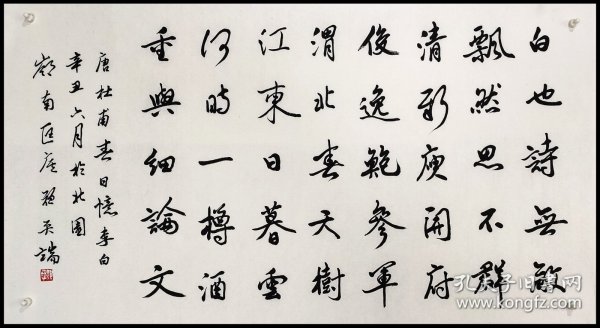 白也詩無敵
飄然思不群
清新庾開府
俊逸鮑參軍
渭北春天樹
江東日暮雲
何時一樽酒
重與細論文
唐杜甫春日憶李白
辛丑六月於北園
嶺南
孔夫子旧書網
www.kongfz.com